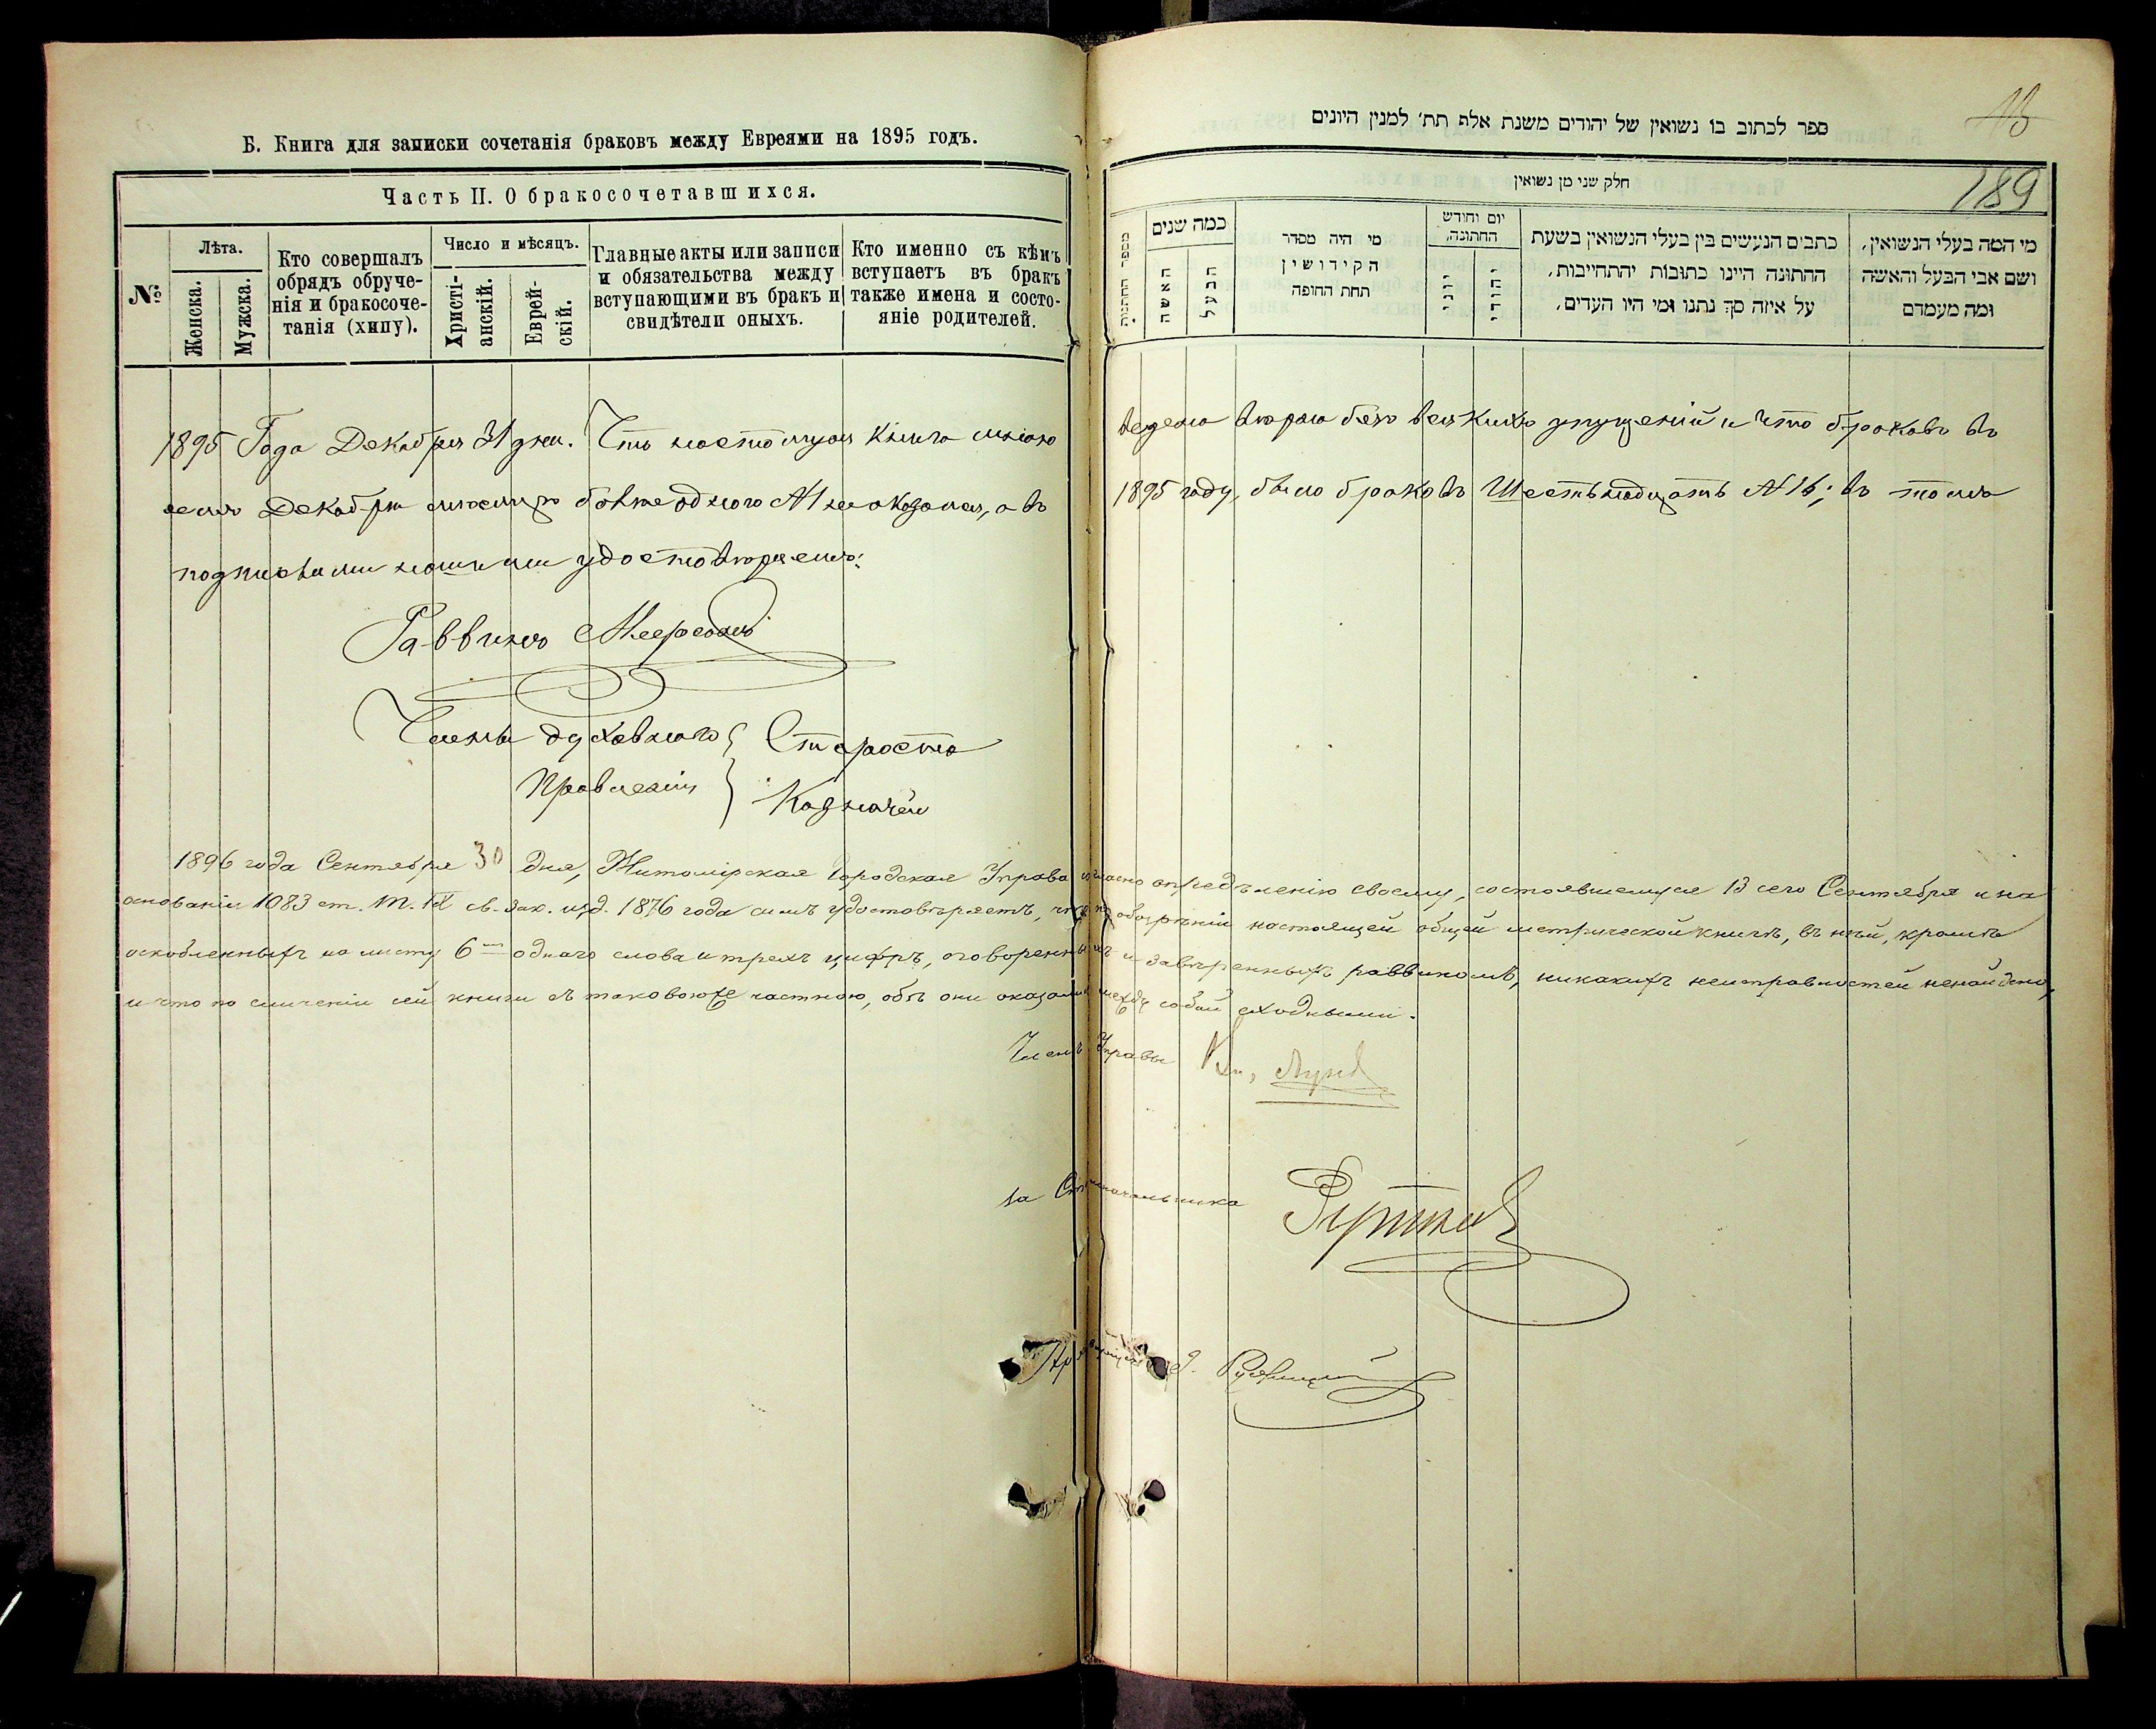 Б. Книга для записки сочетанія браковъ между Евреями на 1895 годъ.
Часть II. О бракосочетавшихся.
№
Лѣта.
Женска.
Мужска.
Кто совершалъ
обрядъ обруче-
нія и бракосоче-
танія (хипу).
Число и мѣсяцъ.
Христі-
анскій.
Еврей-
скій.
Главные акты или записи
и обязательства между
вступающими въ бракъ и
свидѣтели оныхъ.
Кто именно съ кѣмъ
вступаетъ въ бракъ
также имена и состо-
яніе родителей.
ספר לכתוב בו נשואין של יהודים משנת אלף תת׳ למנין היונים
189
חלק שני מן נשואין
מספר החתונות
כמה שנים
האשה
הבעל
מי היה מסדר
הקידושין
תחת החופה
יום וחודש
החתונה,
יוני
יהודי
כתבים הנעשים בין בעלי הנשואין בשעת
החתונה היינו כתובות יהתחייבות,
על איזה סך נתנו ומי היו העדים,
מי המה בעלי הנשואין,
ושם אבי הבעל והאשה
ומה מעמדם
1895 Года Декабря 31 дня. Что настоящая Книга мною ведена вѣрно безъ всякихъ упущеній и что браковъ въ
семъ Декабрѣ мѣсяцѣ болѣе одного №1 не оказалось, а въ 1895 году, было браковъ Шестьнадцать №16; въ томъ
подписами нашими удостовѣряемъ:
Раввинъ
Члены духовнаго Староста
Правленія Казначей
1896 года Сентября 30 дня, Житомірская Городская Управа согласно опредѣленію своему, состоявшемуся 13 сего Сентября и на
основаніи 1083 ст. т. IX св. зак. изд. 1876 года симъ удостовѣряетъ, что по обозрѣніи настоящей общей метрической книги, въ ней, кромѣ
оскобленныхъ на листу 6 одного слова и трехъ цифръ, оговоренныхъ и завѣренныхъ раввиномъ, никакихъ неисправностей ненайдено,
и что по сличеніи сей книги съ таковоюже частною, обѣ они оказались между собой сходными.
Членъ Управы
за Столоначальника